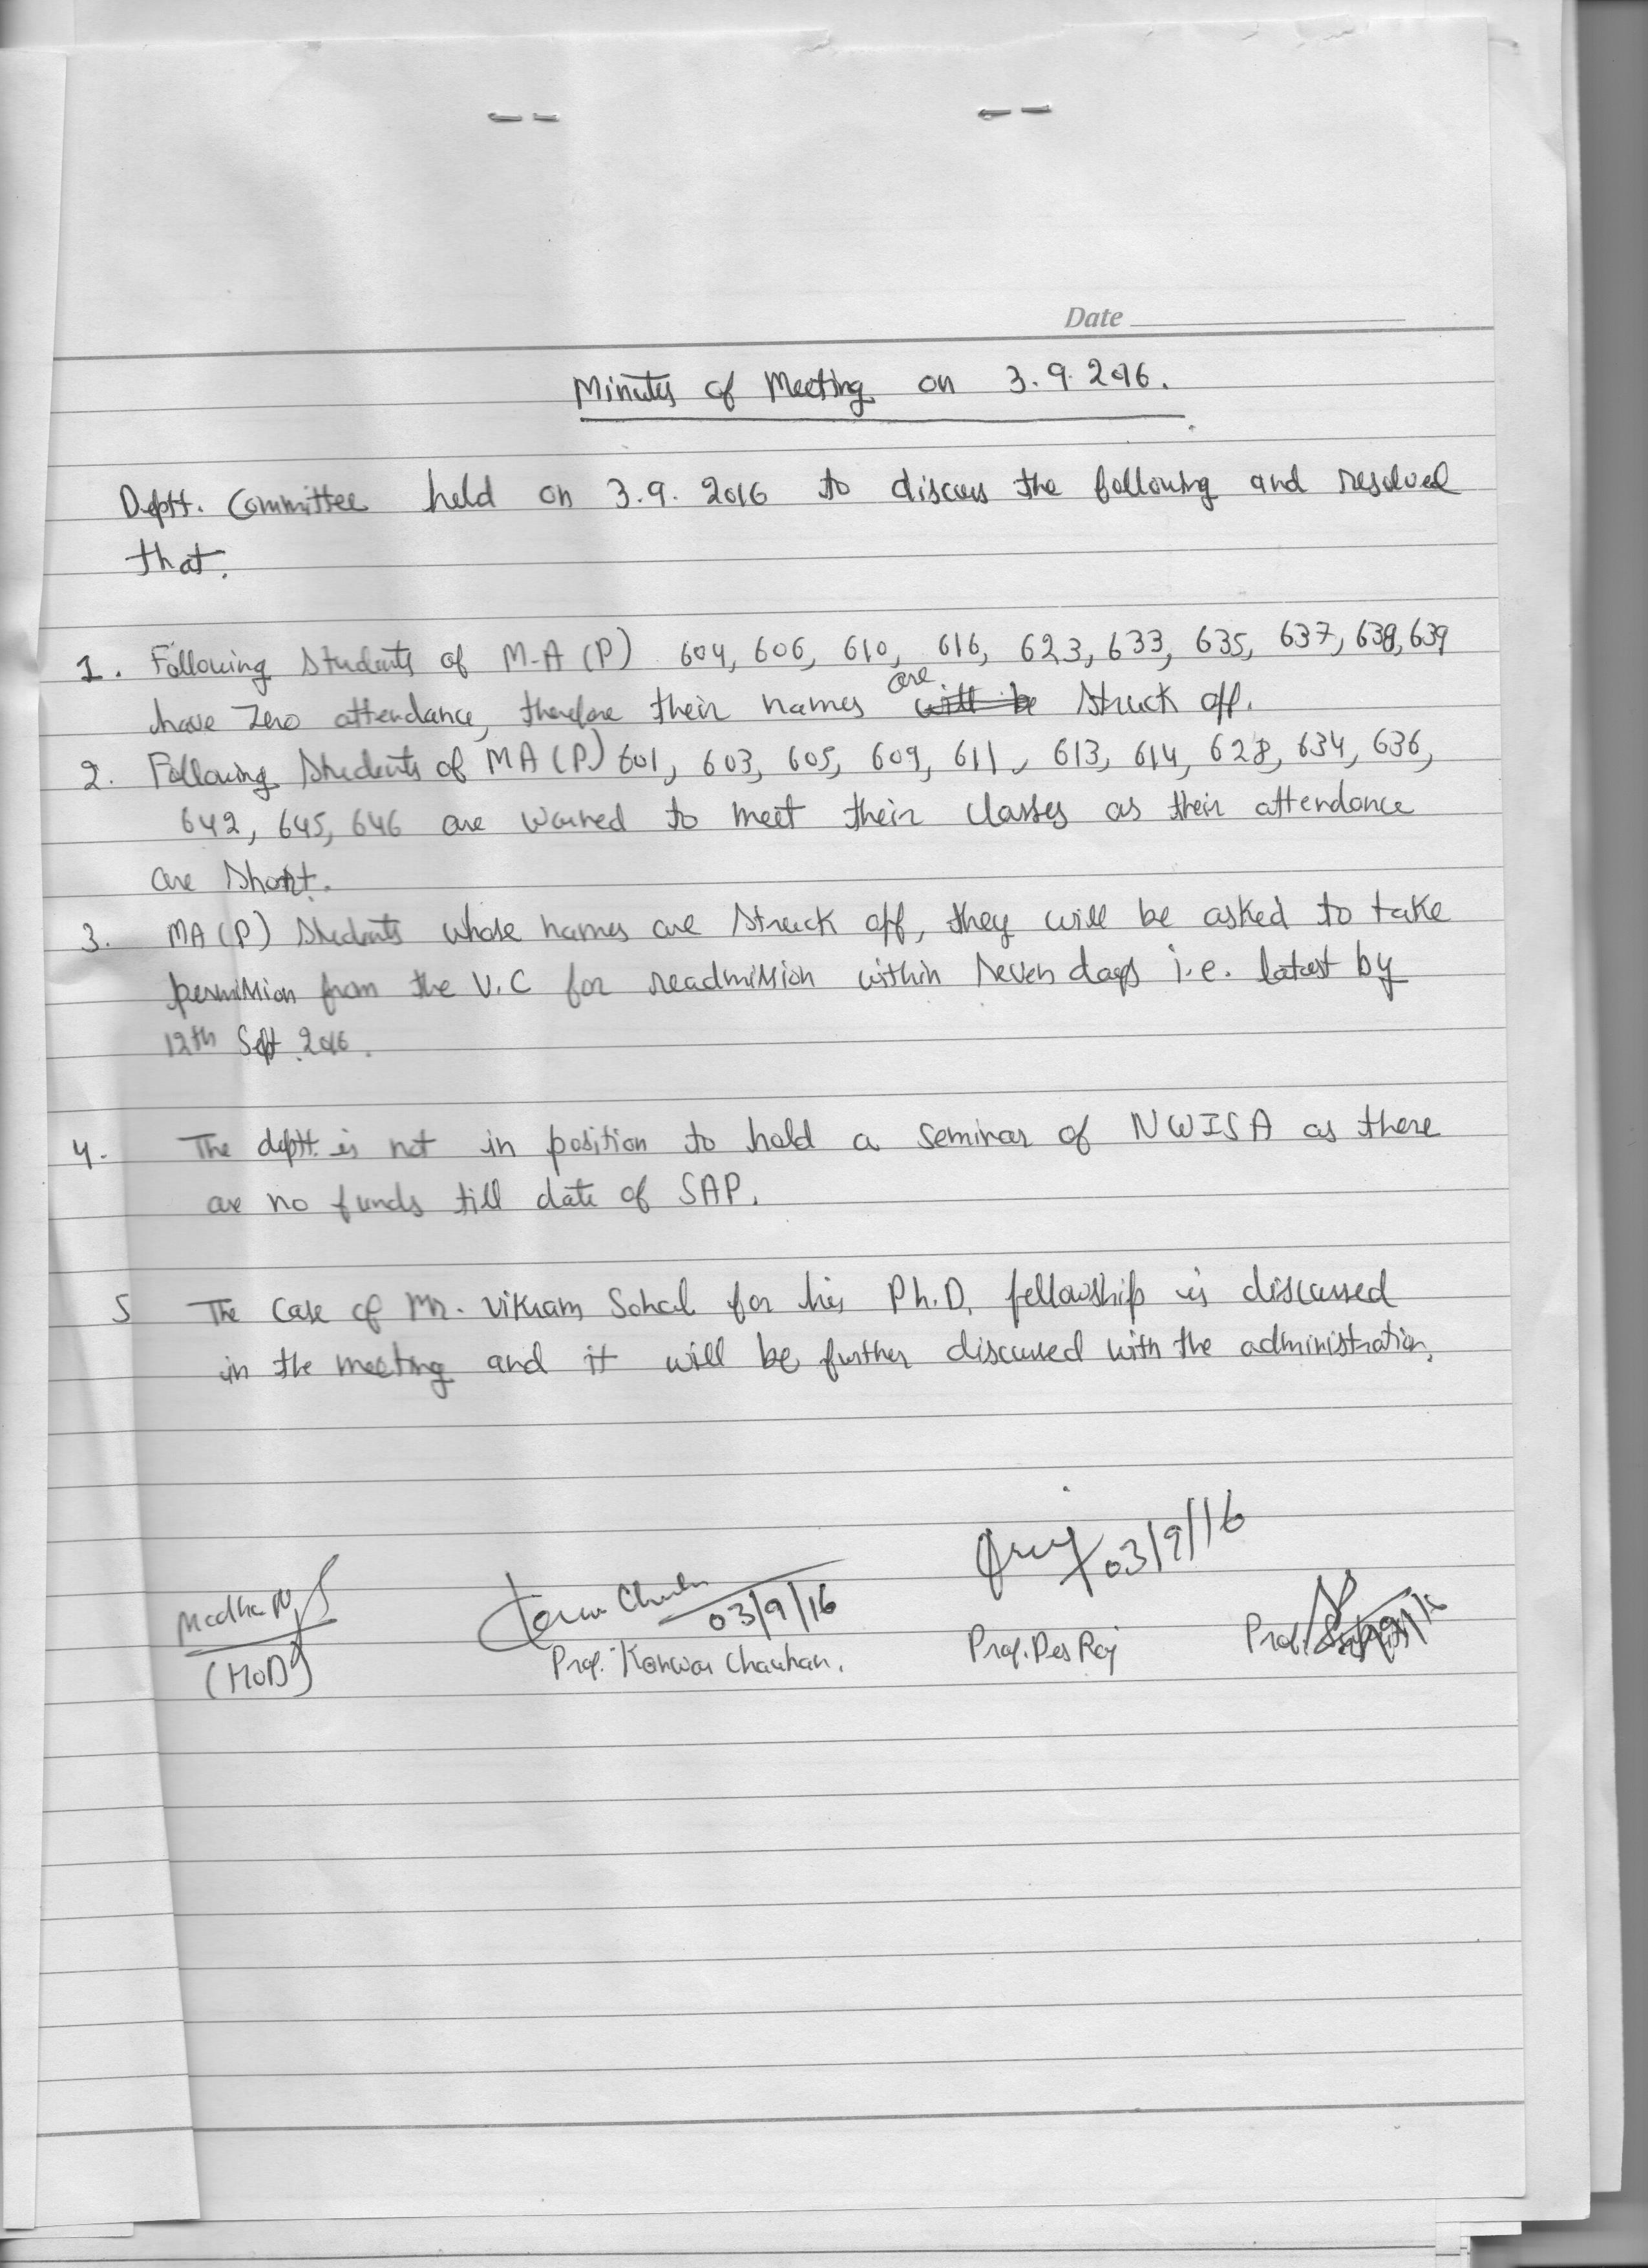 Date
Minutes of Meeting on 3.9.2016.
Deptt. Committee held on 3.9.2016 to discuss the following and resolved
that.
1. Following Students of M-A (P) 604, 606, 610, 616, 623, 633, 635, 637, 638, 639
have Zero attendance, therefore their names are will be Struck off.
2. Following Students of MA (P) 601, 603, 605, 609, 611, 613, 614, 628, 634, 636,
642, 645, 646 are warned to meet their classes as their attendance
are Short.
3. MA (P) Students whose names are Struck off, they will be asked to take
permission from the V.C for readmission within Seven days i.e. latest by
12th Sept. 2016.
4. The deptt. is not in position to hold a Seminar of NWISA as there
are no funds till date of SAP.
5 The Case of Mr. Vikram Sohal for his Ph.D. fellowship is discussed
in the meeting and it will be further discussed with the administration.
03/9/16
03/9/16
(HOD)
Prof. Kanwar Chauhan.
Prof. Des Raj
Prof.